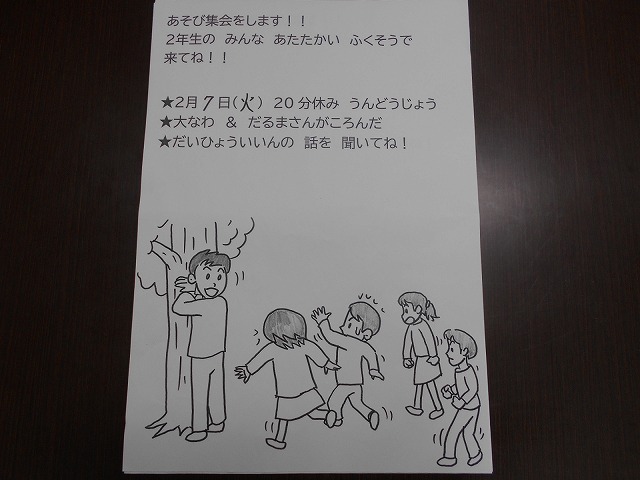 あそび集会をします！！
2年生の　みんな　あたたかい　ふくそうで
来てね！！
★2月7日(火)　20分休み　うんどうじょう
★大なわ　＆　だるまさんがころんだ
★だいひょういいんの　話を　聞いてね！